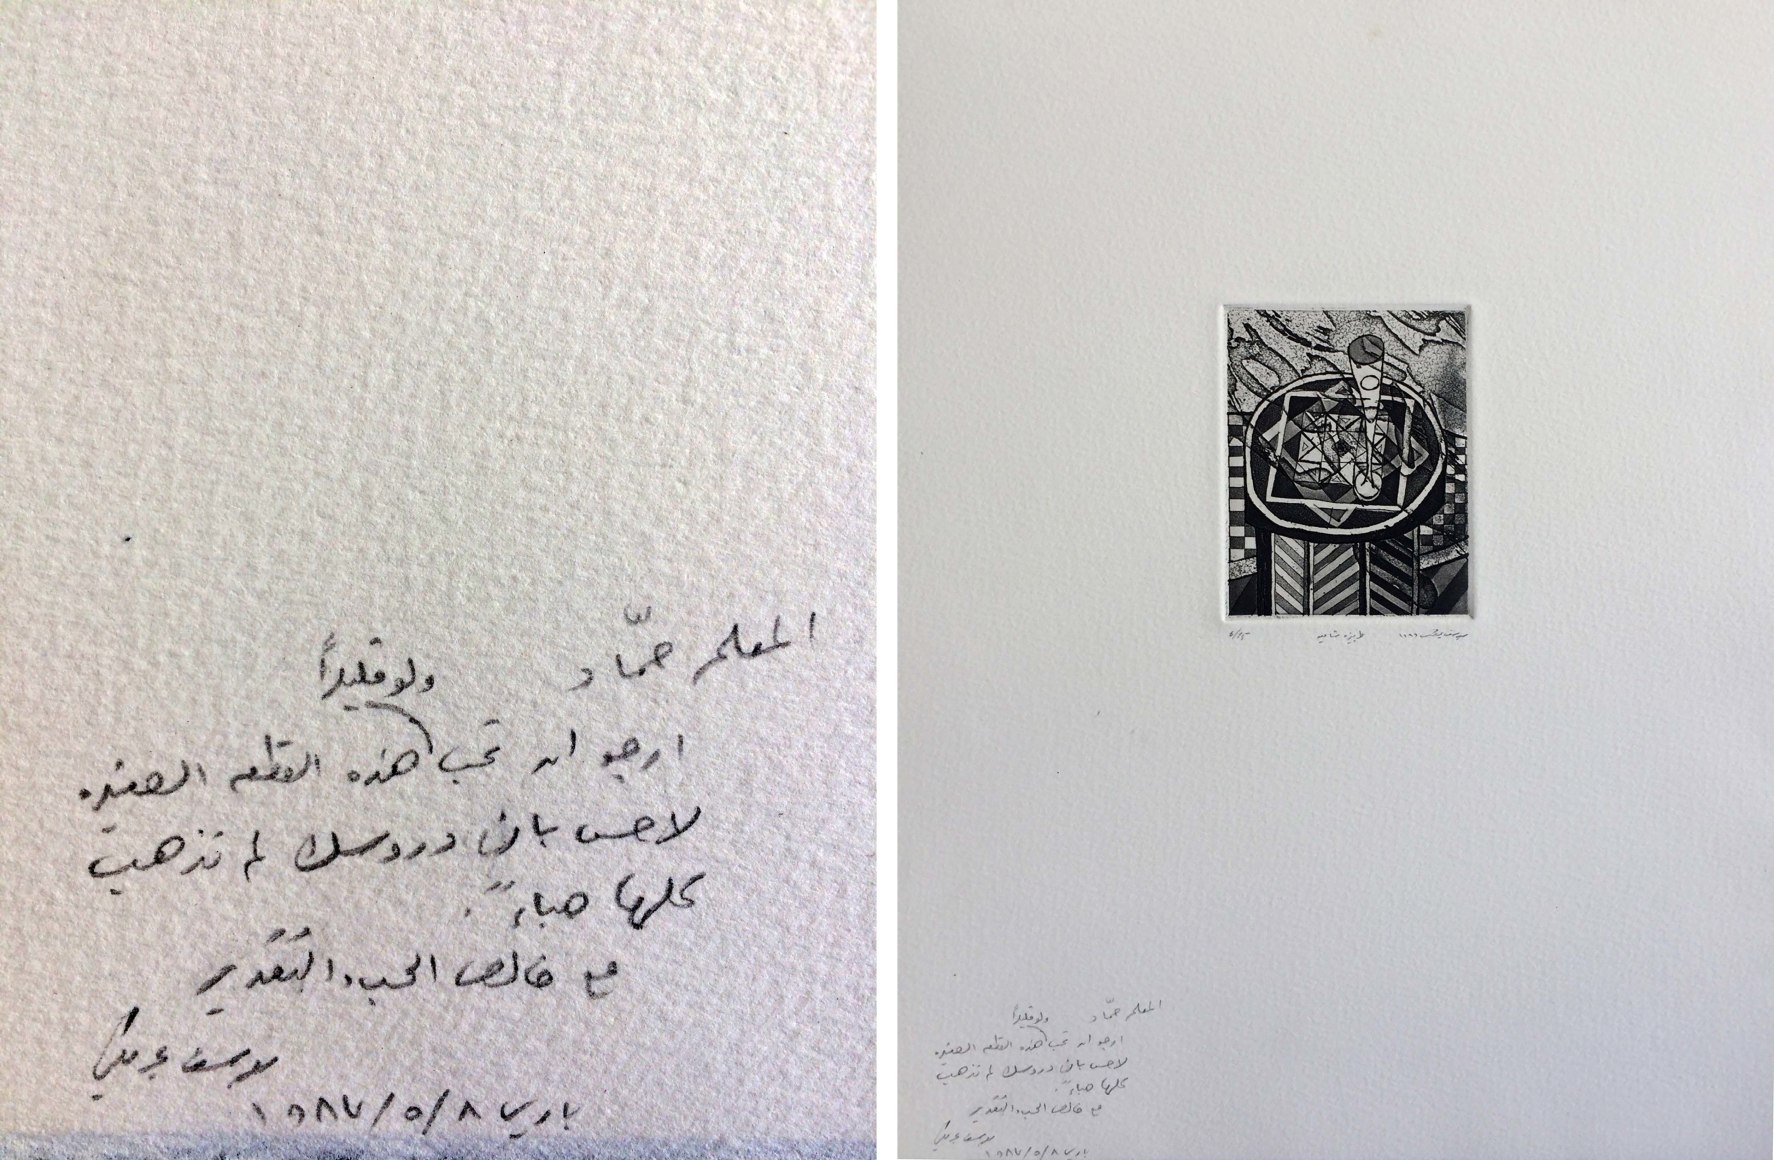 المعلم حمّاد
ولو قليلاً
ارجو ان تحب هذه القطعه الصغيره
لاحس بان دروسك لم تذهب
كلها هباءً.
مع خالص الحب والتقدير
يوسف عبدلكي
باريس ٨/٥/١٩٨٧
٤/٢٥ طربيزه شاميه يوسف
المعلم حمّاد
ولو قليلاً
ارجو ان تحب هذه القطعه الصغيره
لاحس بان دروسك لم تذهب
كلها هباءً.
مع خالص الحب والتقدير
يوسف عبدلكي
باريس ٨/٥/١٩٨٧